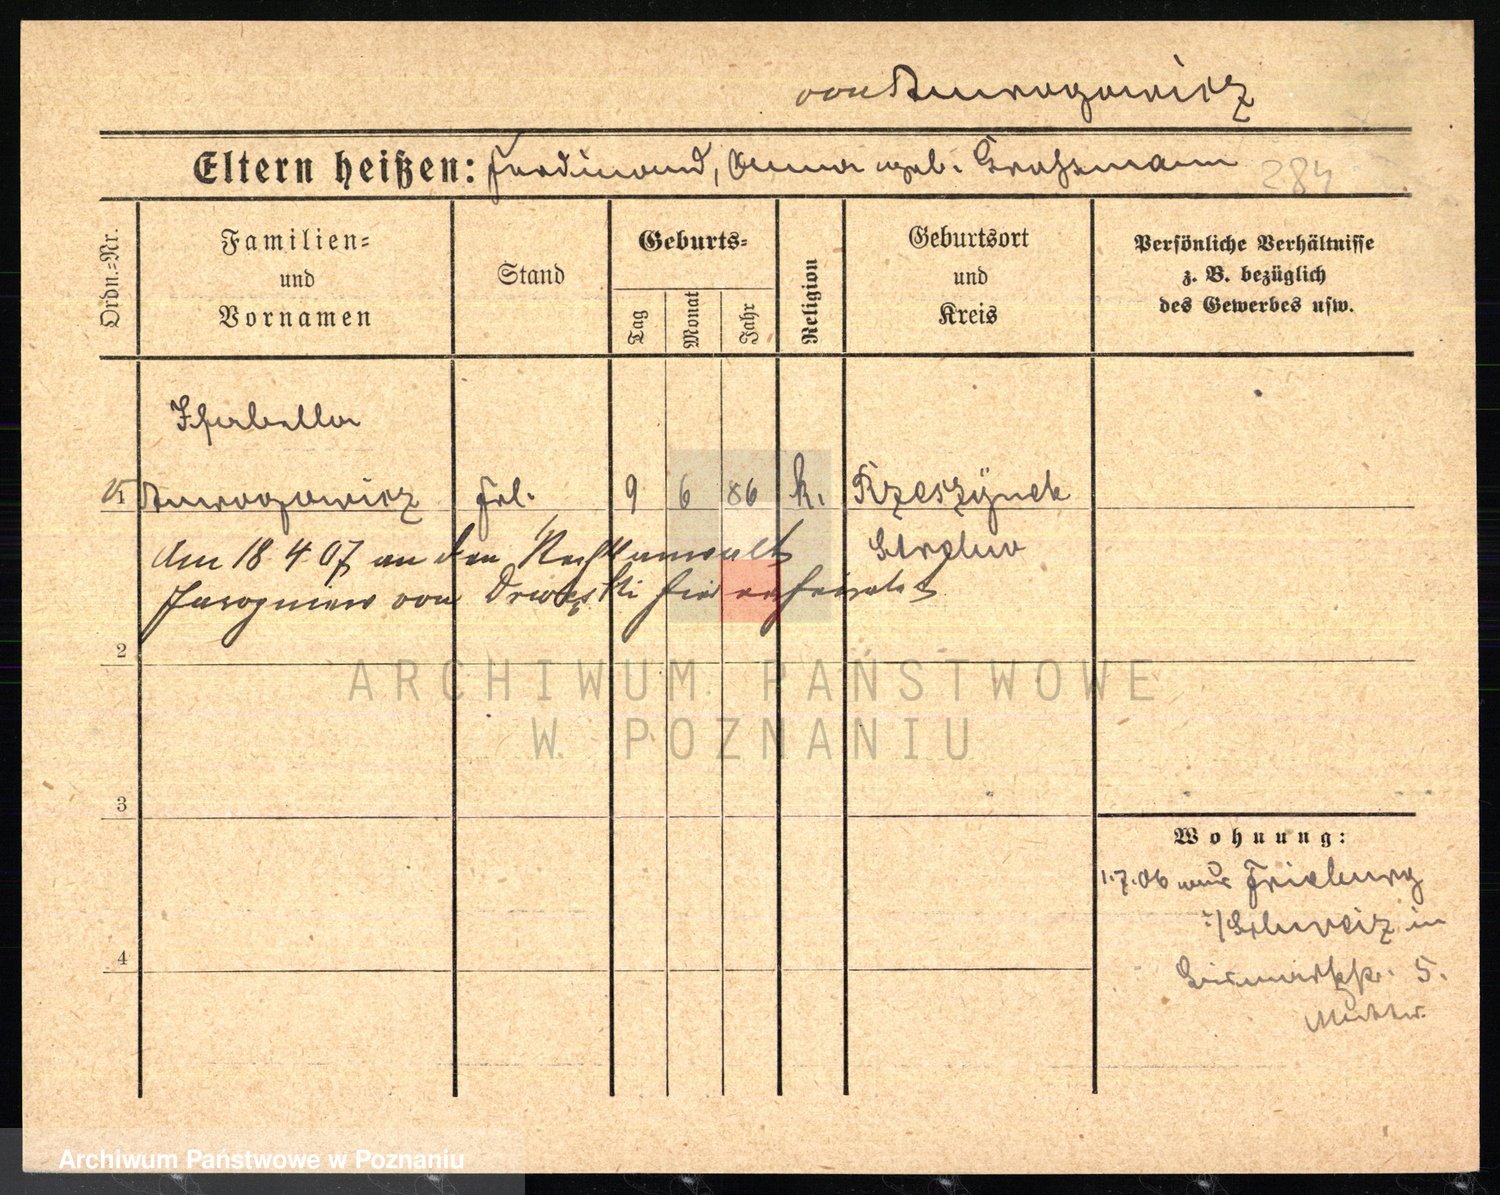 von
Eltern heißen: Ferdinand, Anna geb. Grahsmann
284
Ordn.=Nr.
Familien=
und
Vornamen
Stand
Geburts=
Tag
Monat
Jahr
Religion
Geburtsort
und
Kreis
Persönliche Verhältnisse
z. B. bezüglich
des Gewerbes usw.
Isabella
1 Frl. 9 6 86 k.
Am 18. 4. 07 an den Rechtsanwalt
Jarogniew von Drwęski hier verheiratet
2
3
4
Wohnung:
1.7.06 aus Freiburg
i/Schweiz in
Bismarckstr. 5.
Mutter.
ARCHIWUM PAŃSTWOWE
W POZNANIU
Archiwum Państwowe w Poznaniu